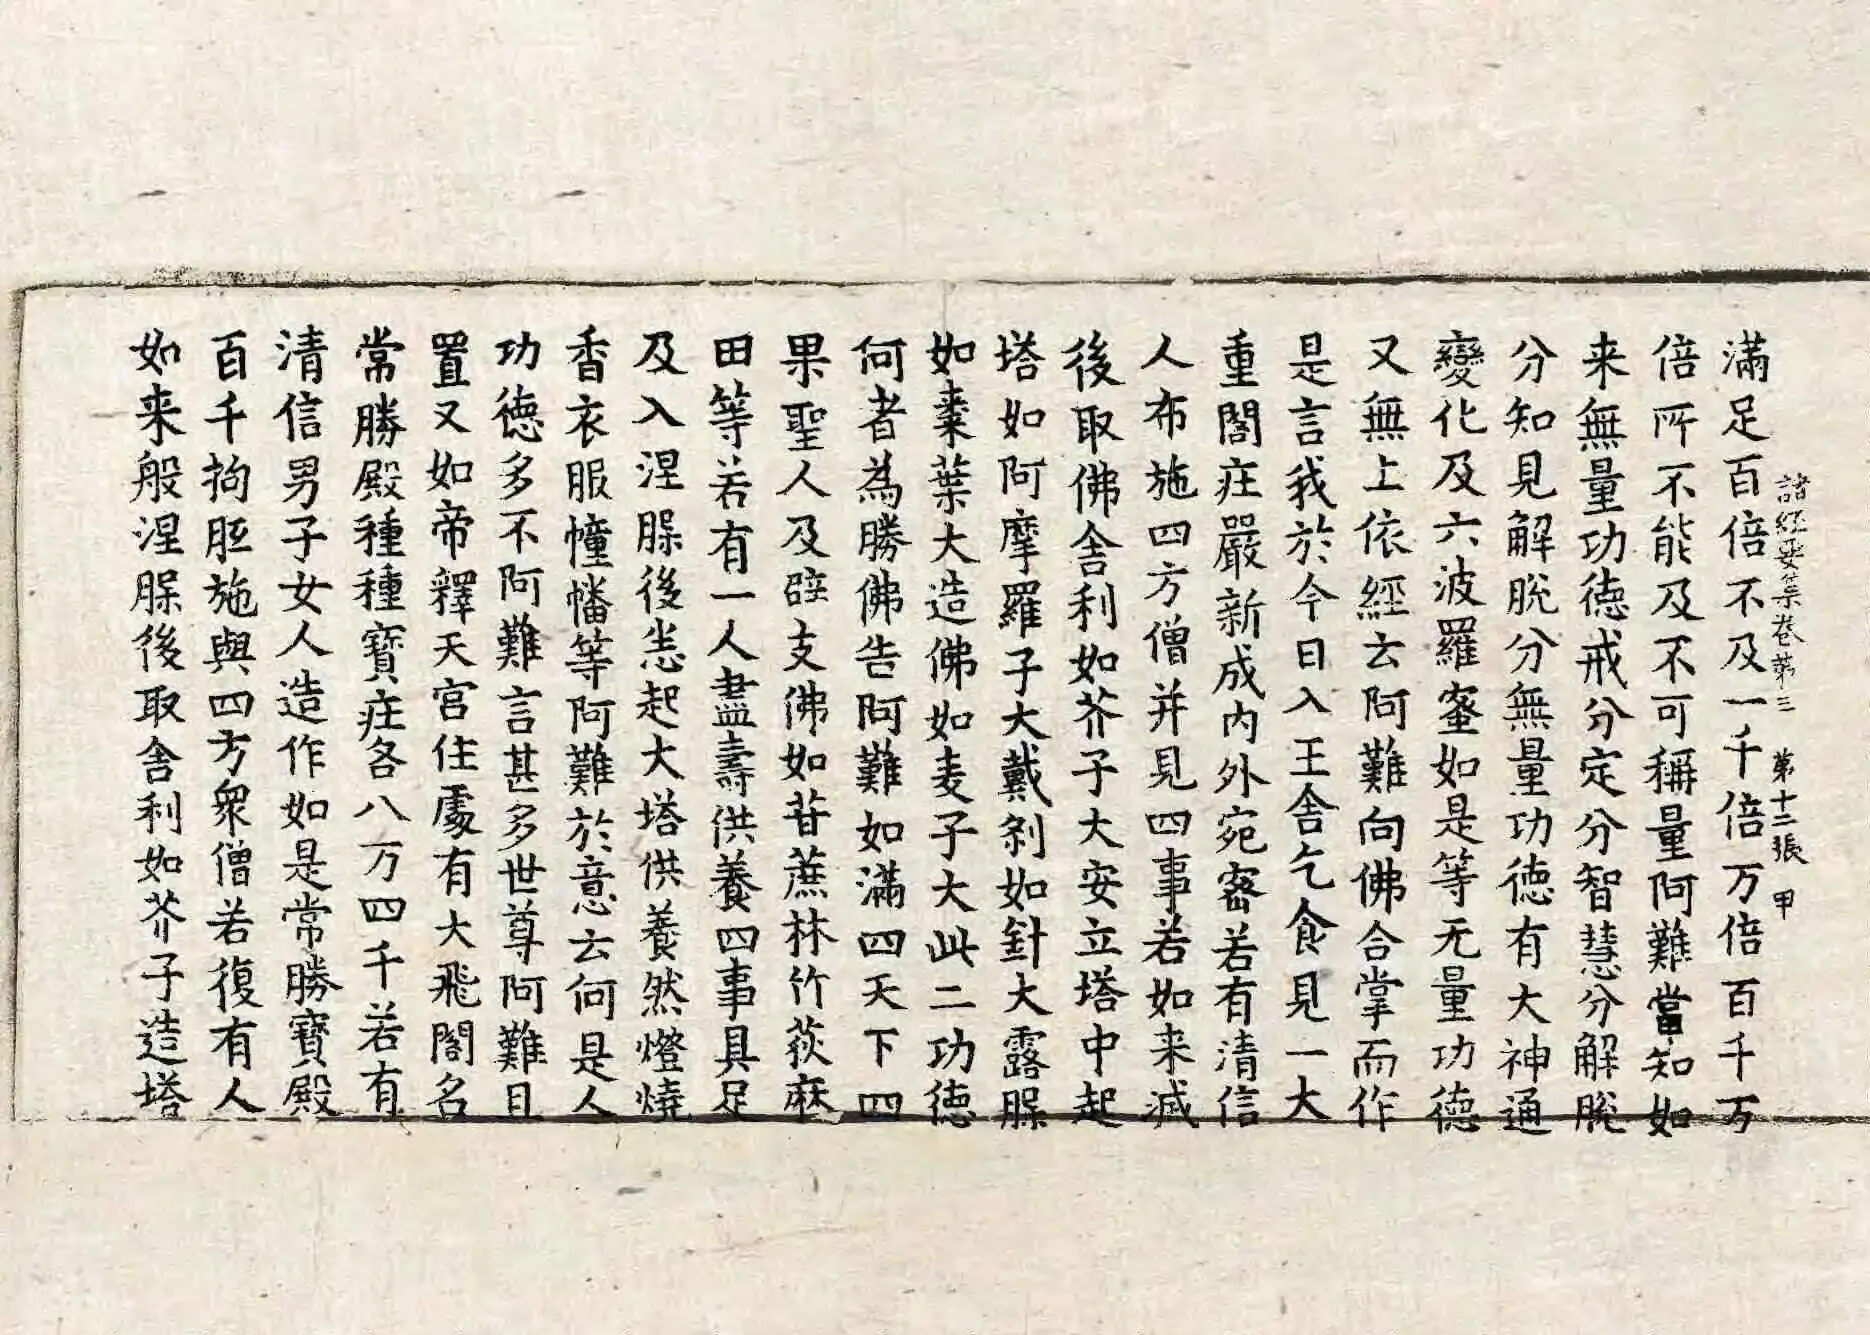 諸經要集卷第三 第十二張 甲
滿足百倍不及一千倍万倍百千万
倍所不能及不可稱量阿難當知如
来無量功德戒分定分智慧分解脫
分知見解脫分無量功德有大神通
變化及六波羅蜜如是等无量功德
又無上依經云阿難向佛合掌而作
是言我於今日入王舍乞食見一大
重閣庄嚴新成內外宛密若有清信
人布施四方僧并見四事若如来滅
後取佛舍利如芥子大安立塔中起
塔如阿摩羅子大戴剎如針大露槃
如棗葉大造佛如麦子大此二功德
何者為勝佛告阿難如滿四天下四
果聖人及辟支佛如甘蔗林竹荻麻
田等若有一人盡壽供養四事具足
及入涅槃後悉起大塔供養然燈燒
香衣服幢幡等阿難於意云何是人
功德多不阿難言甚多世尊阿難且
置又如帝釋天宮住處有大飛閣名
常勝殿種種寶庄各八万四千若有
清信男子女人造作如是常勝寶殿
百千拘胝施與四方衆僧若復有人
如来般涅槃後取舍利如芥子造塔